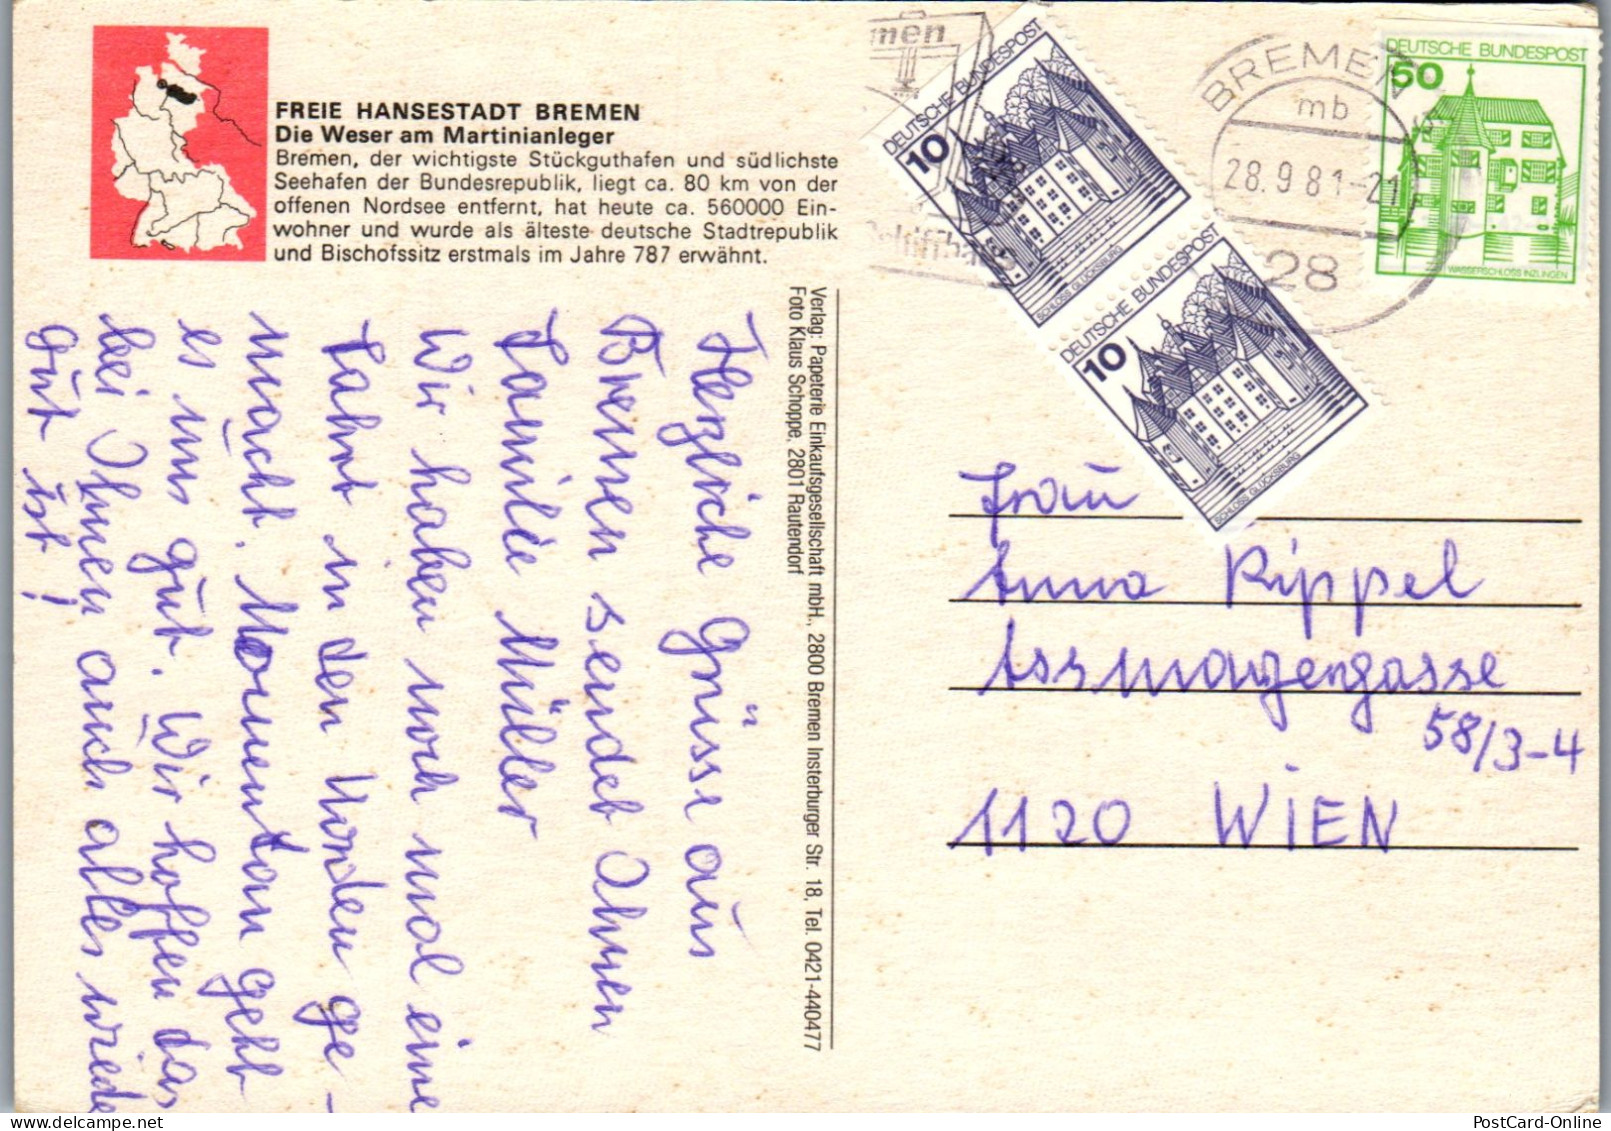 FREIE HANSESTADT BREMEN
Die Weser am Martinianleger
Bremen, der wichtigste Stückguthafen und südlichste
Seehafen der Bundesrepublik, liegt ca. 80 km von der
offenen Nordsee entfernt, hat heute ca. 560000 Ein-
wohner und wurde als älteste deutsche Stadtrepublik
und Bischofssitz erstmals im Jahre 787 erwähnt.
Verlag: Papeterie Einkaufsgesellschaft mbH., 2800 Bremen Insterburger Str. 18, Tel. 0421-440477
Foto Klaus Schoppe, 2801 Rautendorf
Herzliche Grüsse aus
Bremen sendet Ihnen
Familie Müller
Wir haben noch mal eine
Fahrt in den Norden ge-
macht. Momentan geht
es uns gut. Wir hoffen das
bei Ihnen auch alles wieder
gut ist!
men
Schiffbau
DEUTSCHE BUNDESPOST
10
SCHLOSS GLÜCKSBURG
DEUTSCHE BUNDESPOST
10
SCHLOSS GLÜCKSBURG
BREMEN
mb
28.9.81-21
28
DEUTSCHE BUNDESPOST
50
WASSERSCHLOSS INZLINGEN
Frau
Anna Rippel
Assmayergasse
58/3-4
1120 WIEN
PostCard-Online